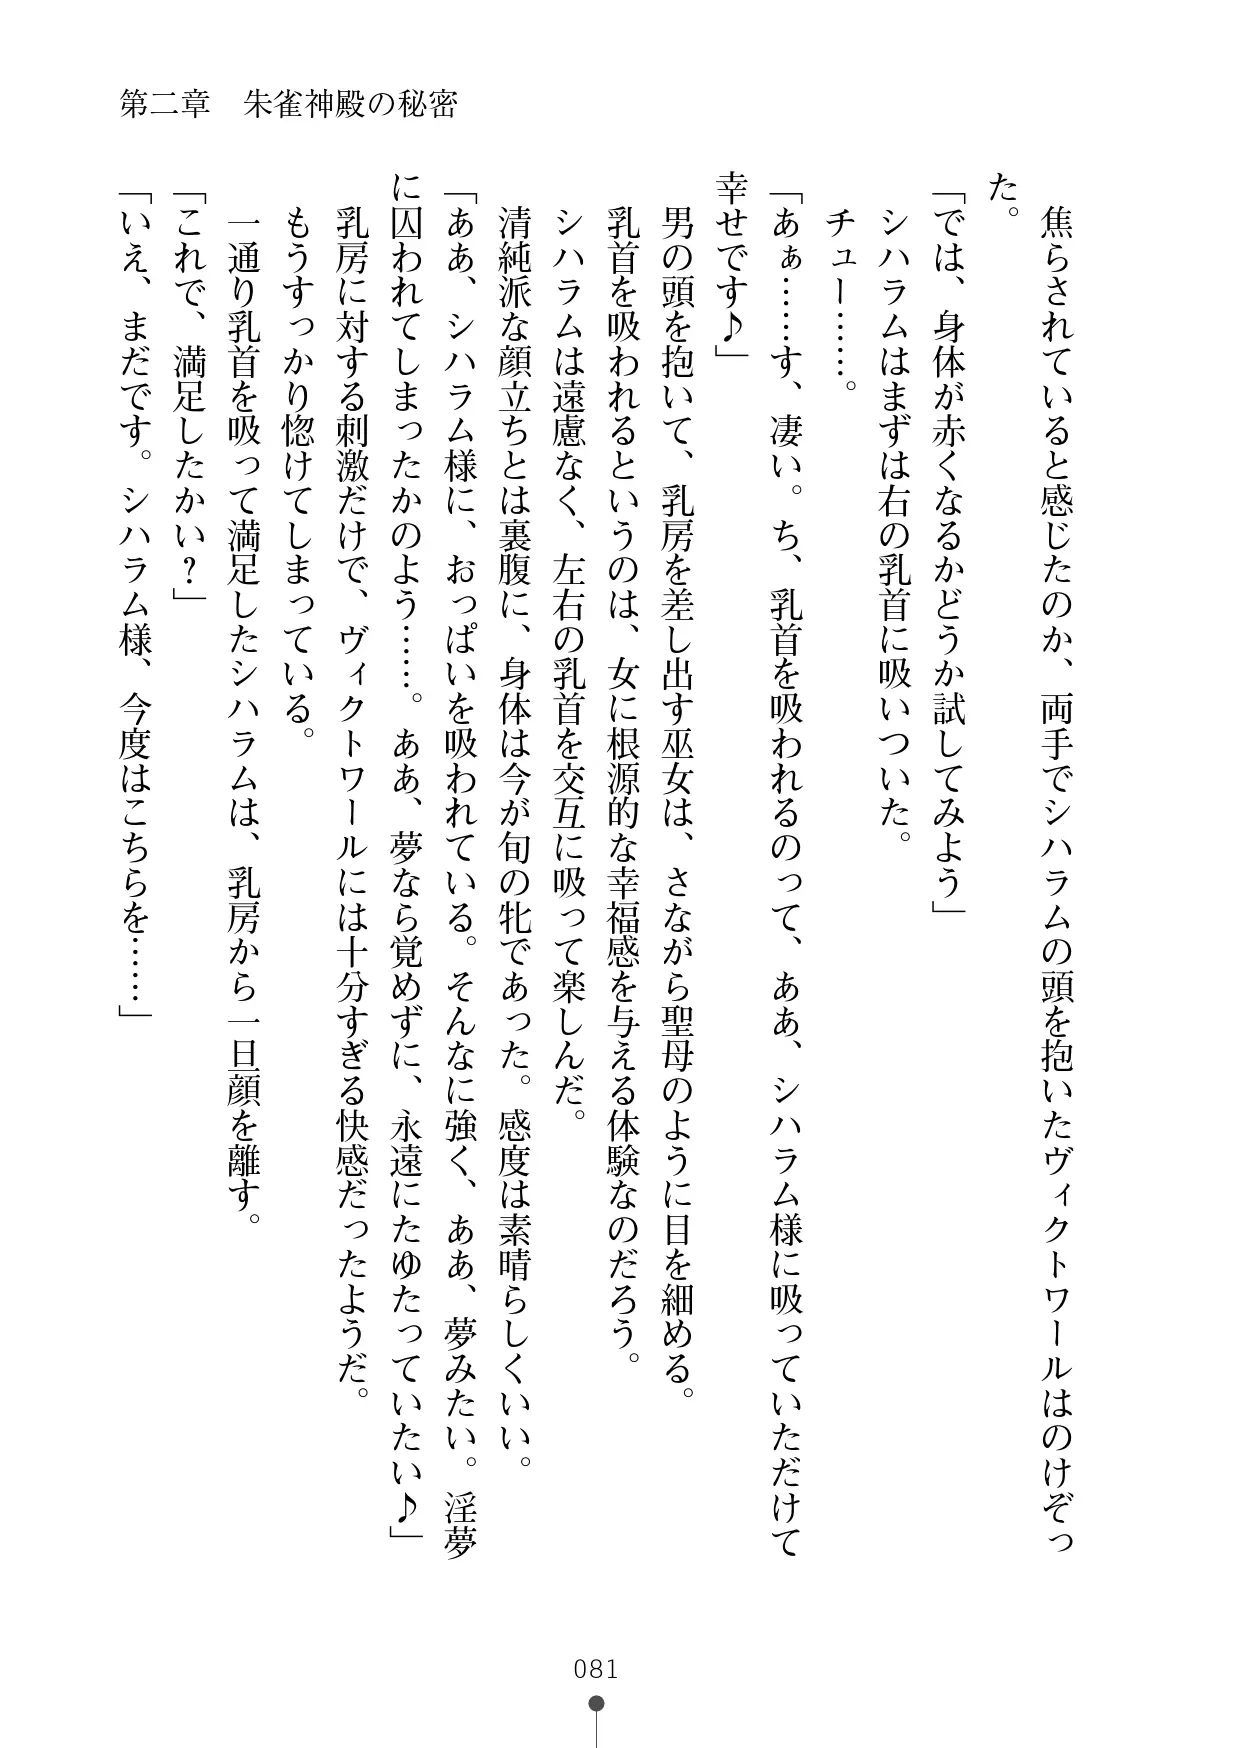 第二章　朱雀神殿の秘密
　焦らされていると感じたのか、両手でシハラムの頭を抱いたヴィクトワールはのけぞっ
た。
「では、身体が赤くなるかどうか試してみよう」
　シハラムはまずは右の乳首に吸いついた。
　チュー……。
「あぁ……す、凄い。ち、乳首を吸われるのって、ああ、シハラム様に吸っていただけて
幸せです♪」
　男の頭を抱いて、乳房を差し出す巫女は、さながら聖母のように目を細める。
　乳首を吸われるというのは、女に根源的な幸福感を与える体験なのだろう。
　シハラムは遠慮なく、左右の乳首を交互に吸って楽しんだ。
　清純派な顔立ちとは裏腹に、身体は今が旬の牝であった。感度は素晴らしくいい。
「ああ、シハラム様に、おっぱいを吸われている。そんなに強く、ああ、夢みたい。淫夢
に囚われてしまったかのよう……。ああ、夢なら覚めずに、永遠にたゆたっていたい♪」
　乳房に対する刺激だけで、ヴィクトワールには十分すぎる快感だったようだ。
　もうすっかり惚けてしまっている。
　一通り乳首を吸って満足したシハラムは、乳房から一旦顔を離す。
「これで、満足したかい？」
「いえ、まだです。シハラム様、今度はこちらを……」
081